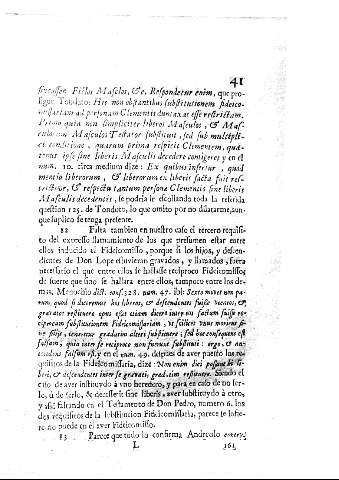 41
fuissen Filios Masculos, &c. Respondetur enim, que pro-
sigue Tondato: His non obstantibus substitutionem fideico-
missariam ad personam Clementis dumtaxat esse restrictam.
Primo quia non simpliciter liberos Masculos, & Mas-
culorum Masculos Testator substituit, sed sub multipli-
ci conditione, quarum prima respicit Clementem, qua-
tenus ipse sine liberis Masculis decedere contigeret; y en el
num. 10. circa medium dize: Ex quibus infertur, quod
mentio liberorum, & liberorum ex liberis facta fuit res-
trictive, & respectu tantum persona Clementis sine liberis
Masculis decedentis, se podria le escollando toda la referida
question 125. de Tondato, lo que omito por no dilatarme, aun-
que suplico se tenga presente.
82 Falta tambien en nuestro caso el tercero requisi-
to del expresso llamamiento de los que presumen estar entre
ellos inducido el Fideicomisso, porque si los hijos, y desen-
dientes de Don Lope estuvieran gravados, y llamados, fuera
necessario el que entre ellos se hallasse reciproco Fideicomisso;
de suerte que sino se hallara entre ellos, faltaria entre to-
dos, Menochio dict. conf. 228. num. 47. ibi: Sexto movet me pa-
rum, quod si diceremus los liberos, & descendentes fuisse vocatos, &
gravatos restituere opus esset etiam dicere inter eos factam fuisse re-
ciprocam substitutionem Fideicommissariam, ut scilicet unus moriens si-
ne filijs, teneretur gradatim alteri substituere; sed hoc consequens est
falsum, quia inter se reciproco non fuerunt substituti: ergo, & an-
tecedens falsum est, y en el num. 49. despues de aver puesto los re-
quisitos de la Fideicomissaria, dize: Non enim dici possunt liberi,
& descendentes inter se gravati gradatim restituere. Secundo el
caso de aver instituydo à uno heredero, y para en caso de no ser-
lo, ù de serlo, & decesserit sine liberis, aver substituido à otro,
y assi faltando en el Testamento de Don Pedro, numero 6. los
dos requisitos de la substitucion Fideicomissaria, parece se infie-
re no puede en el aver Fideicomisso.
83 Parece que todo lo confirma Andreolo controv.
L 161.